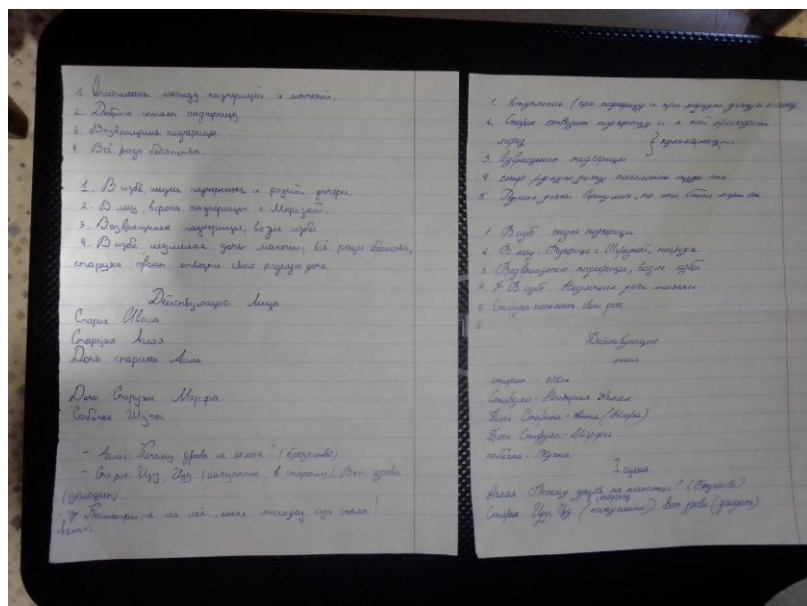 1. Отношения между падчерицей и мачехой.
2. Доброта спасает падчерицу
3. Возвращение падчерицы
4. Всё ради богатства.
1. В избе жизнь падчерицы и родной дочери.
2. В лесу, встреча падчерицы с Морозкой.
3. Возвращение падчерицы, возле избы
4. В избе неумелая дочь мачехи, всё ради богатства,
старуха просит отвезти свою родную дочь.
Действующие Лица
Старик Иван
Старуха Аглая
Дочь старика
Дочь Старухи Марфа
Собачка Жучка
- Аглая: Почему дрова не колоты? (брезгливо)
- Старик: Иду, Иду (испуганно, в сторону) Вот дрова
(уходит)
- Посмотрите на неё, какие
1. Вступление (про падчерицу и про родную дочь
2. Старик отвозит падчерицу и к ней приходит
мороз } кульминация
3. Возвращение падчерицы
4. родную дочку
5. Родная дочка вернулась, но
1. В избе жизнь падчерицы
2. В лесу. Падчерица с Морозкой,
3. Возвращение падчерицы, возле избы
4. В избе. Неумелая дочь мачехи
5. Старуха посылает свою дочь
6.
Действующие
лица
старик - Иван
Старуха - Аглая
Дочь Старика -
Дочь Старухи - Марфа
собачка - Жучка
I сцена
Аглая: Почему дрова не колоты? (Брезгливо)
Старик: Иду, Иду (испуганно) Вот дрова (уходит)